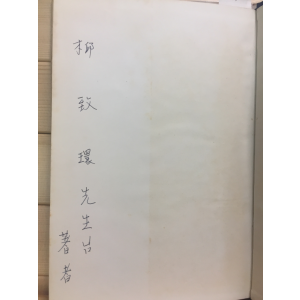 柳致環先生台
著者